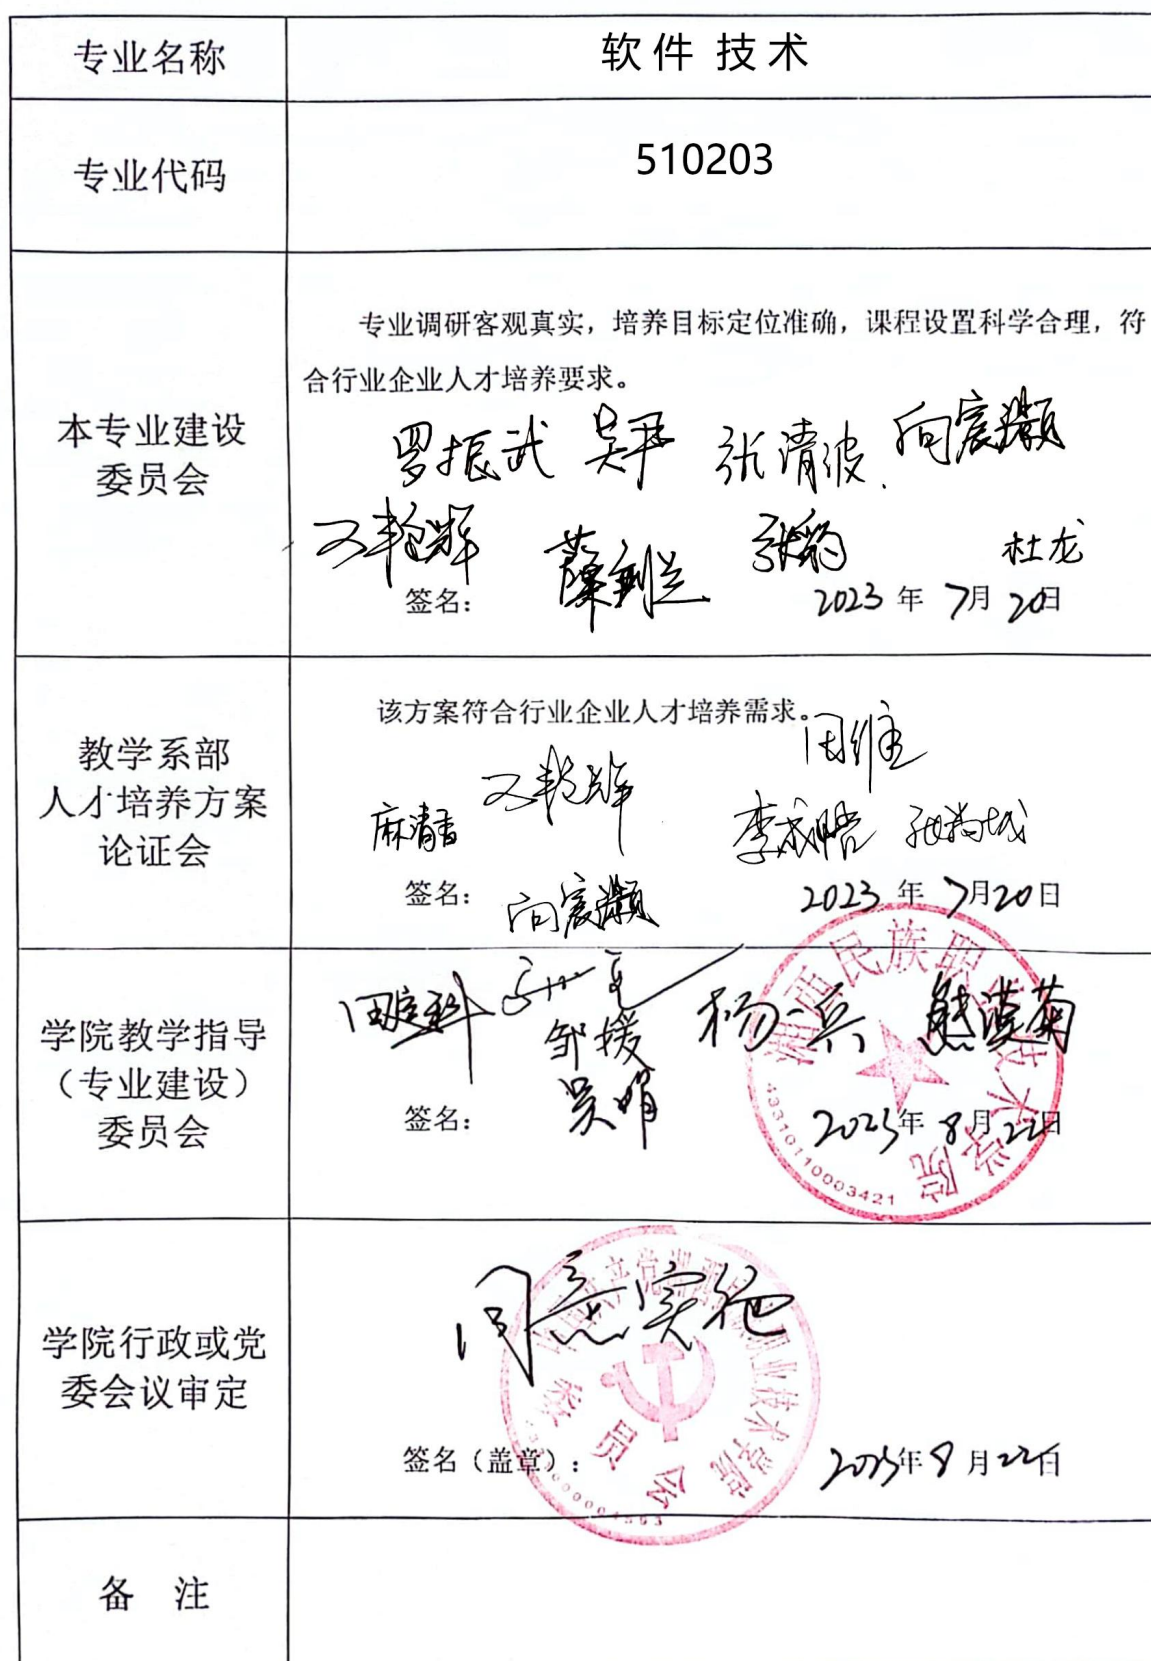 专业名称
软件 技术
专业代码
510203
本专业建设
委员会
专业调研客观真实，培养目标定位准确，课程设置科学合理，符
合行业企业人才培养要求。
罗振武 吴平 张清波 向宸灏
张豹 杜龙
签名：
2023 年 7月 20日
教学系部
人才培养方案
论证会
该方案符合行业企业人才培养需求。
田维
麻清香
签名：
2023 年 7月20日
学院教学指导
（专业建设）
委员会
邹援
杨兵
吴娟
签名：
2023年 8月22日
湘西民族职业技术学院
学院行政或党
委会议审定
同意实施
签名（盖章）：
2023年 8 月22日
委员会
备 注